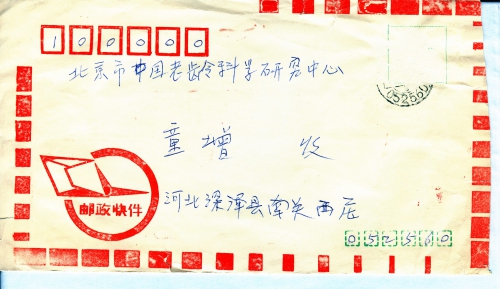 100000
北京市中国老龄科学研究中心
052560
童增 收
邮政快件
河北深泽县南关西店
052560